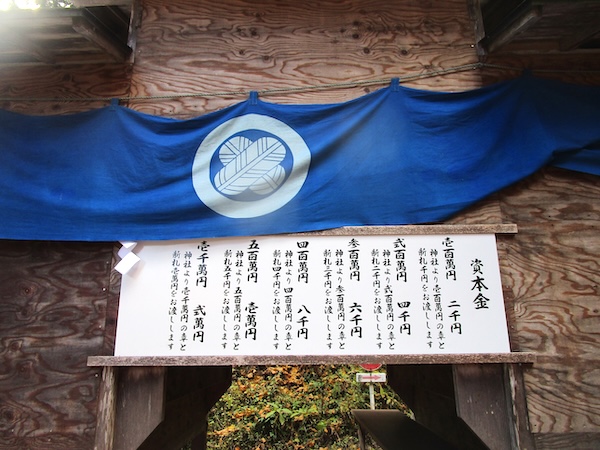 資本金
壱百萬円 二千円
神社より壱百萬円の幸と
新札千円をお渡しします
弐百萬円 四千円
神社より弐百萬円の幸と
新札二千円をお渡しします
参百萬円 六千円
神社より参百萬円の幸と
新札三千円をお渡しします
四百萬円 八千円
神社より四百萬円の幸と
新札四千円をお渡しします
五百萬円 壱萬円
神社より五百萬円の幸と
新札五千円をお渡しします
壱千萬円 弐萬円
神社より壱千萬円の幸と
新札壱萬円をお渡しします